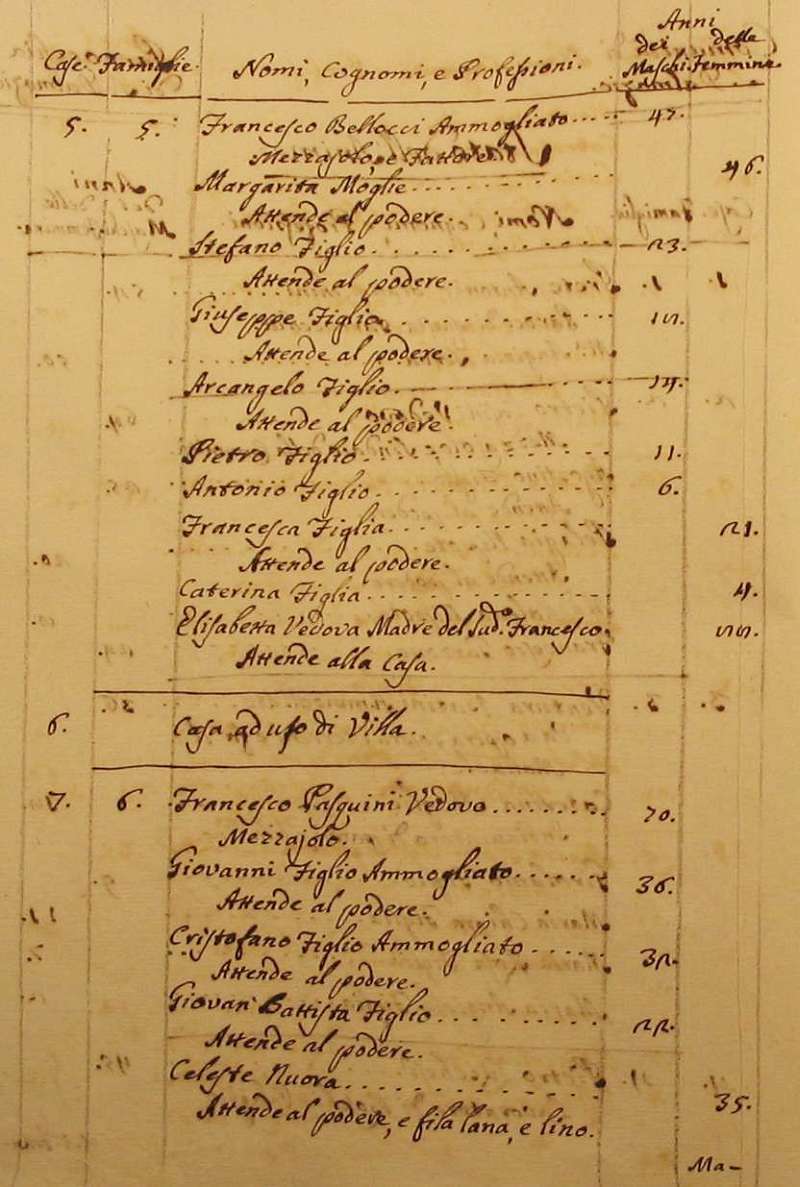 Anni
Case. Famiglie. Nomi, Cognomi, e Professioni. dei Maschi. delle Femmine.
5. 5. Francesco Bellocci Ammogliato 47.
Mezzajolo, e Fattore
Margarita Moglie 46.
Attende al podere.
Stefano Figlio 23.
Attende al podere.
Giuseppe Figlio
Attende al podere.
Arcangelo Figlio 14.
Attende al podere.
Pietro Figlio 11.
Antonio Figlio 6.
Francesca Figlia 21.
Attende al podere.
Caterina Figlia 4.
Elisabetta Vedova Madre del Sud.o Francesco
Attende alla Casa.
6. Casa ad uso di Villa.
7. 6. Francesco Pasquini Vedovo 70.
Mezzajolo.
Giovanni Figlio Ammogliato 36.
Attende al podere.
Cristofano Figlio Ammogliato 32.
Attende al podere.
Giovan Battista Figlio 22.
Attende al podere.
Celeste Nuora 35.
Attende al podere, e fila lana, e lino.
Ma-